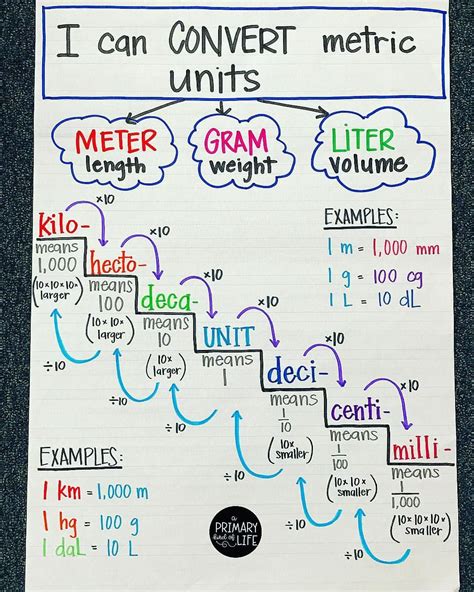 I can CONVERT metric
units
METER
length
GRAM
weight
LITER
volume
kilo-
means
1,000
(10×10×10×
larger)
x10
hecto-
means
100
(10×10×
larger)
x10
deca-
means
10
(10×
larger)
x10
UNIT
means
1
x10
deci-
means
1
10
(10×
smaller)
x10
centi-
means
1
100
(10×10×
smaller)
x10
milli-
means
1
1,000
(10×10×10×
smaller)
÷10
÷10
÷10
÷10
÷10
÷10
EXAMPLES:
1 m = 1,000 mm
1 g = 100 cg
1 L = 10 dL
EXAMPLES:
1 km = 1,000 m
1 hg = 100 g
1 daL = 10 L
a
PRIMARY
kind of
LIFE